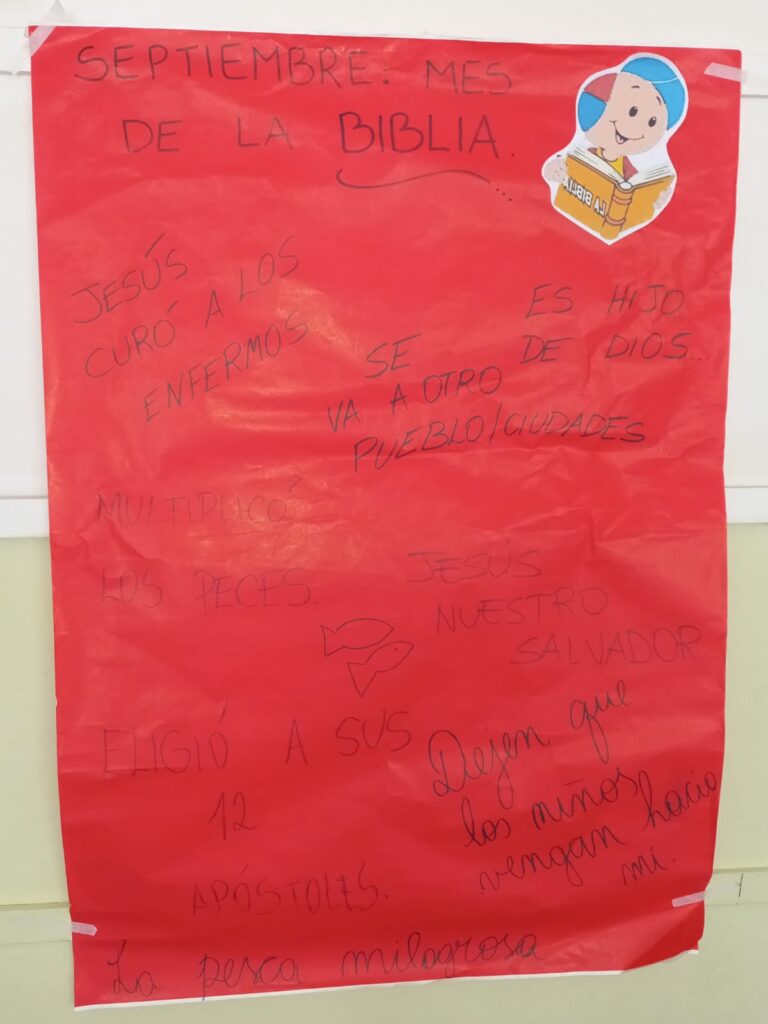 SEPTIEMBRE: MES
DE LA BIBLIA.
LA BIBLIA
JESÚS
CURÓ A LOS
ENFERMOS
ES HIJO
DE DIOS...
SE
VA A OTRO
PUEBLO/CIUDADES
MULTIPLICÓ
LOS PECES.
JESÚS
NUESTRO
SALVADOR...
ELIGIÓ A SUS
12
APÓSTOLES.
Dejen que
los niños
vengan hacia
mi.
La pesca milagrosa